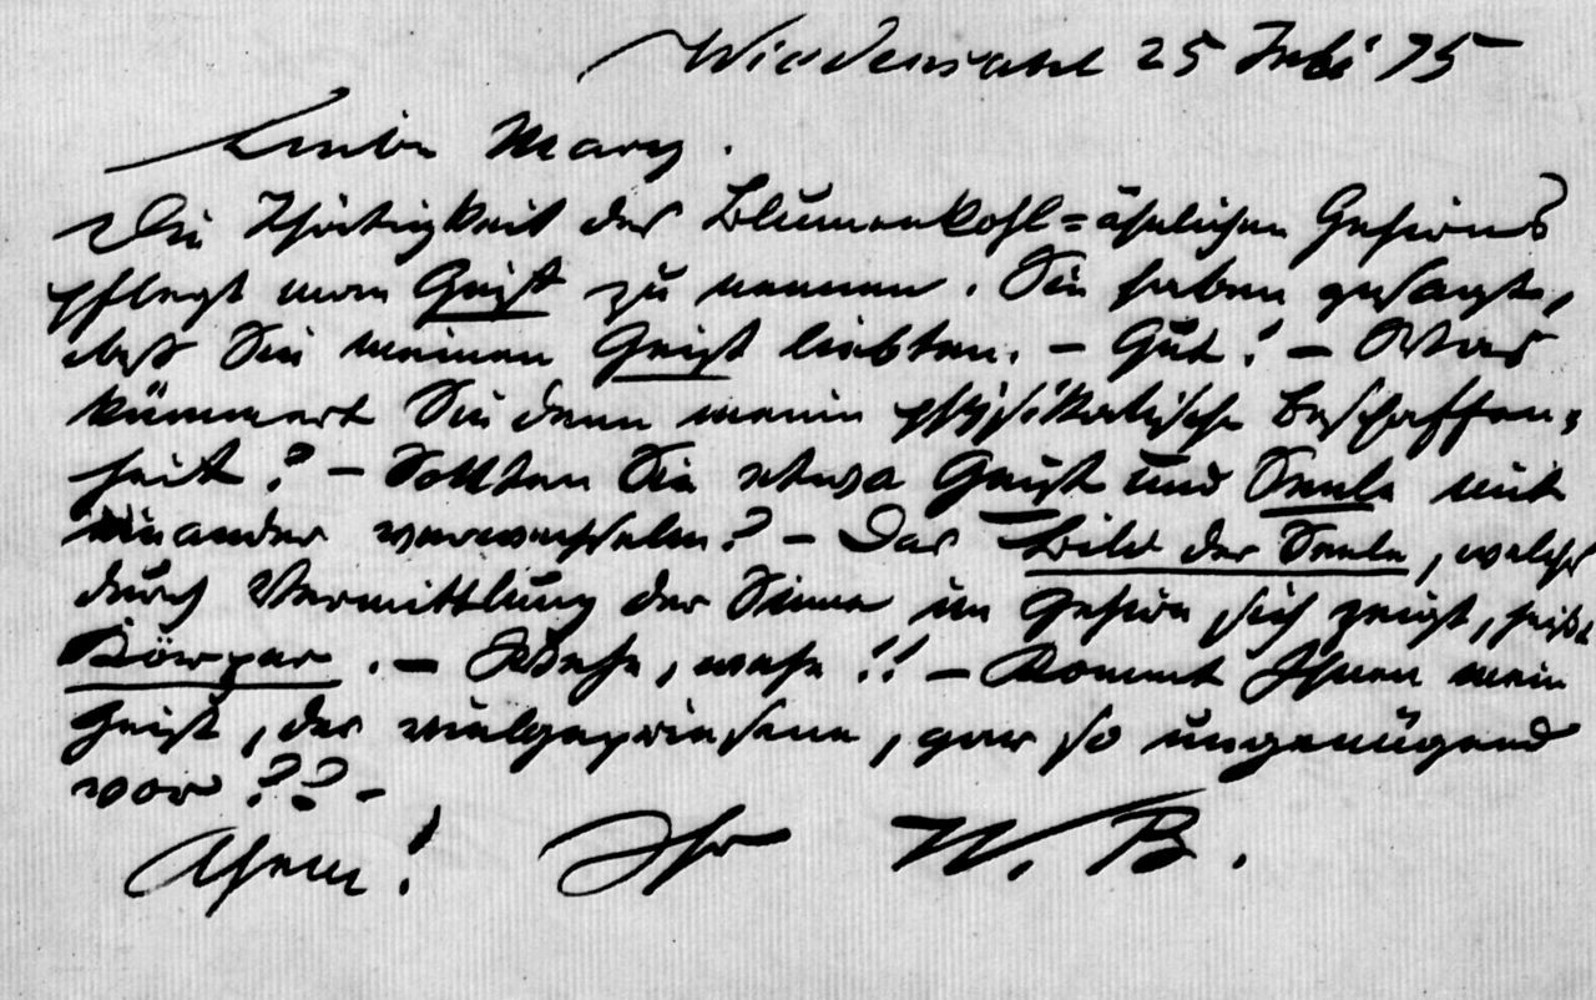 Wiedensahl 25 Juli 75
Liebe Mary.
Die Thätigkeit des Blumenkohl=ähnlichen Gehirns
pflegt man Geist zu nennen. Sie haben gesagt,
daß Sie meinen Geist liebten. – Gut! – Was
kümmert Sie denn meine physikalische Beschaffen=
heit? – Sollten Sie etwa Geist und Seele mit
einander verwechseln? – Das Bild der Seele, welches
durch Vermittlung der Sinne im Gehirn sich zeigt, heißt
Körper. – Wehe, wehe!! – Kommt Ihnen mein
Geist, der vielgepriesene, gar so ungenügend
vor?? –
Ahem! Ihr W. B.